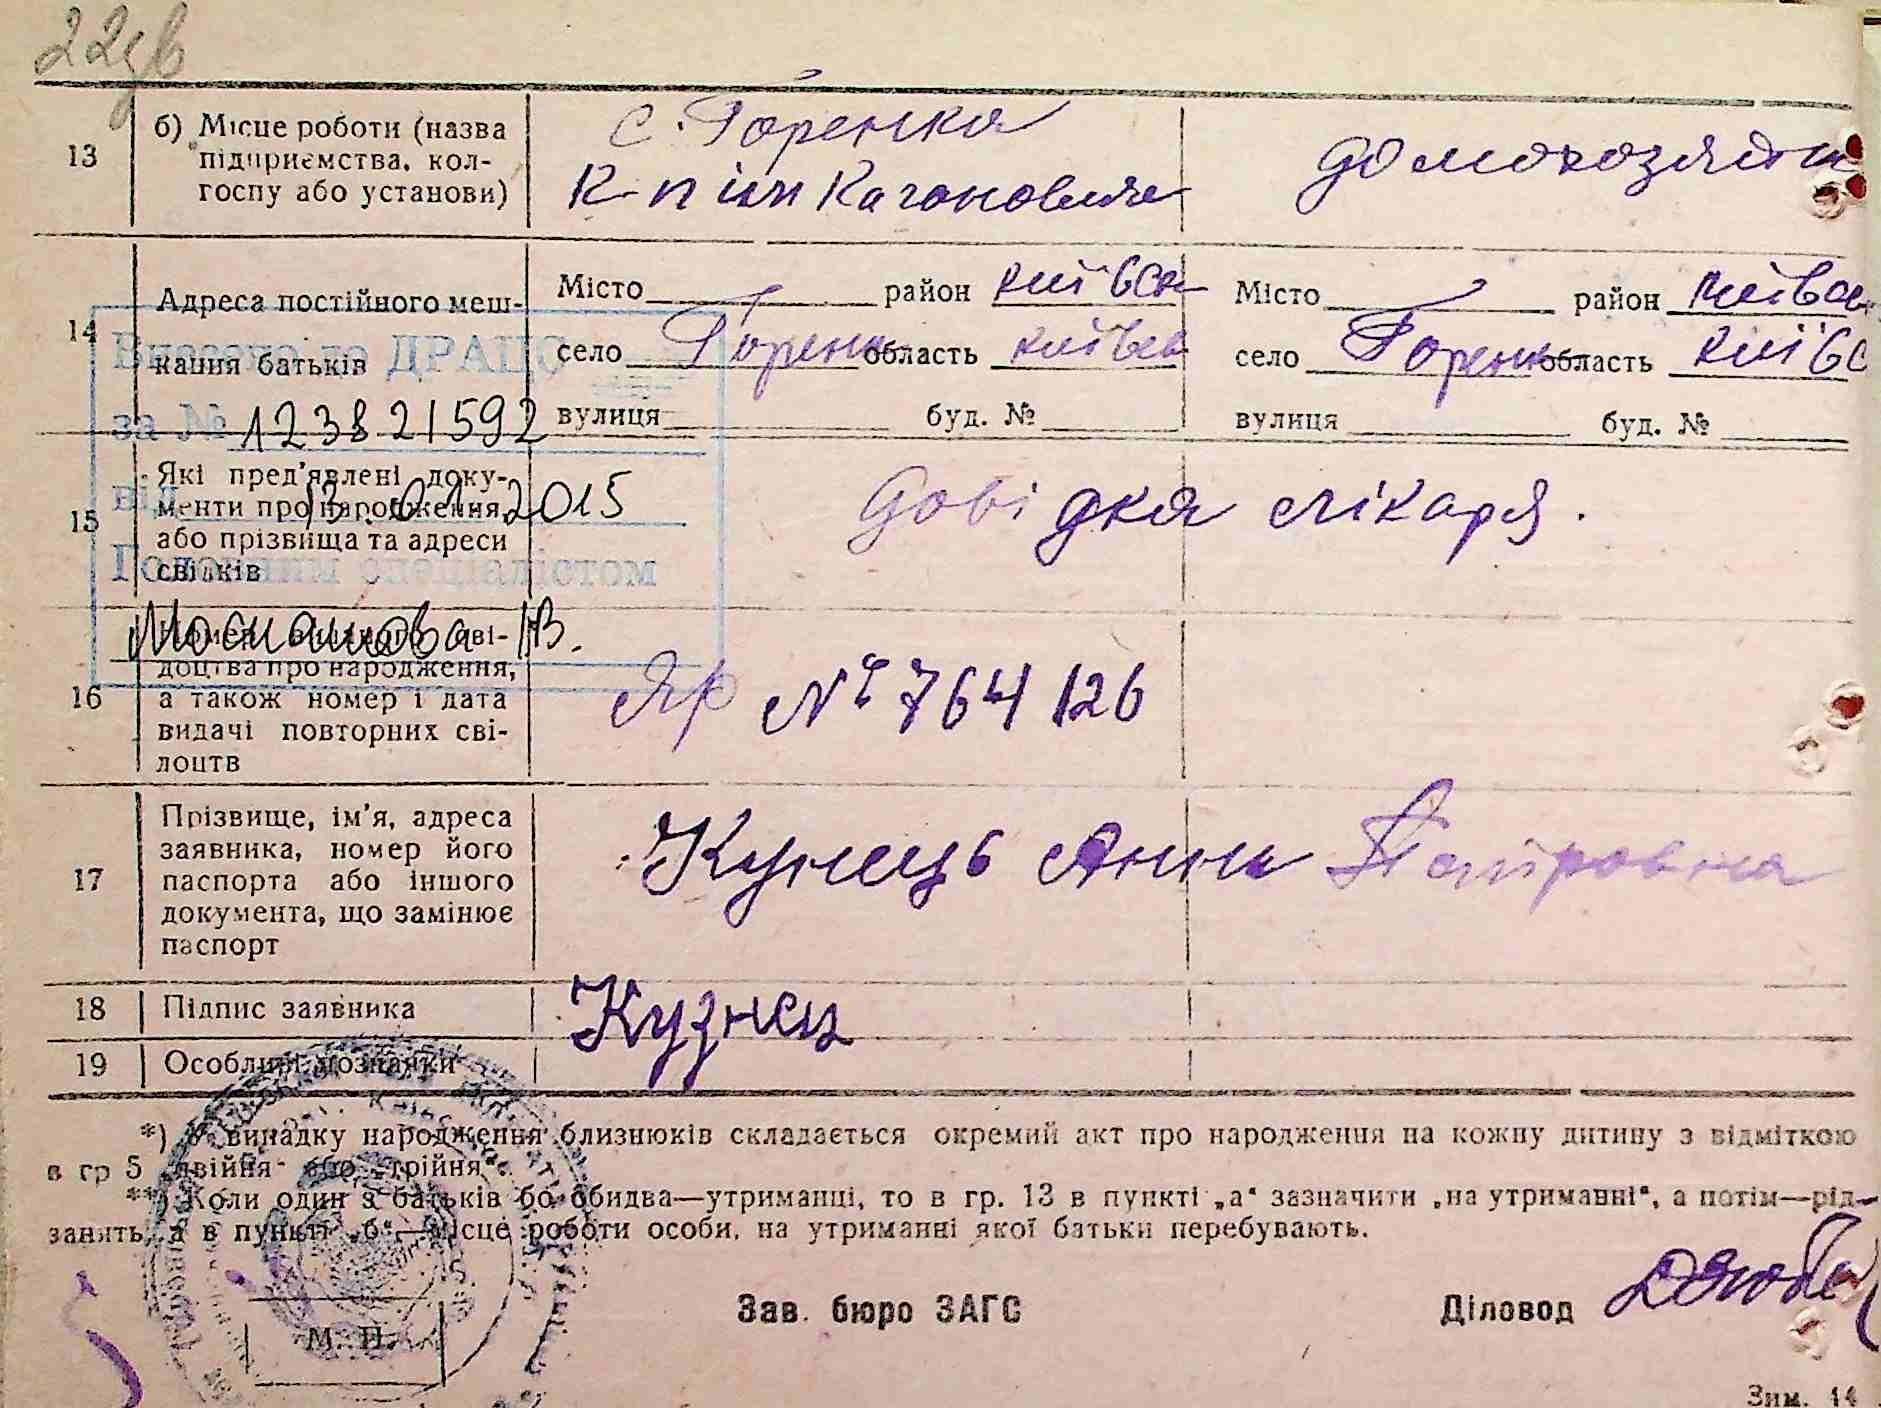 22
13
б) Місце роботи (назва
підприємства, кол-
госпу або установи)
с. Горенка
к-п ім Кагановича
домохозяйк
14
Адреса постійного меш-
кания батьків
Місто район Київськ
село Горенк область Київськ
вулиця буд. №
Місто район Київськ
село Горенк область Київс
вулиця буд. №
Внесено до ДРАЦС
за № 123821592
від 13. 2015
Головним спеціалістом
15
Які пред'явлені доку-
менти про народження,
або прізвища та адреси
свідків
Довідка лікаря.
16
Номер виданого сві-
доцтва про народження,
а також номер і дата
видачі повторних сві-
доцтв
ЯР № 764126
17
Прізвище, ім'я, адреса
заявника, номер його
паспорта або іншого
документа, що замінює
паспорт
Кунець Анна Петровна
18
Підпис заявника
Кузнец
19
Особливі позначки
*) У випадку народження близнюків складається окремий акт про народження на кожну дитину з відміткою
в гр 5 „двійня" або „трійня".
**) Коли один з батьків бо обидва—утриманці, то в гр. 13 в пункті „а" зазначити „на утриманні", а потім—рід
занять, а в пункті „б"—місце роботи особи, на утриманні якої батьки перебувають.
М. П.
Зав. бюро ЗАГС
Діловод
Зим. 44